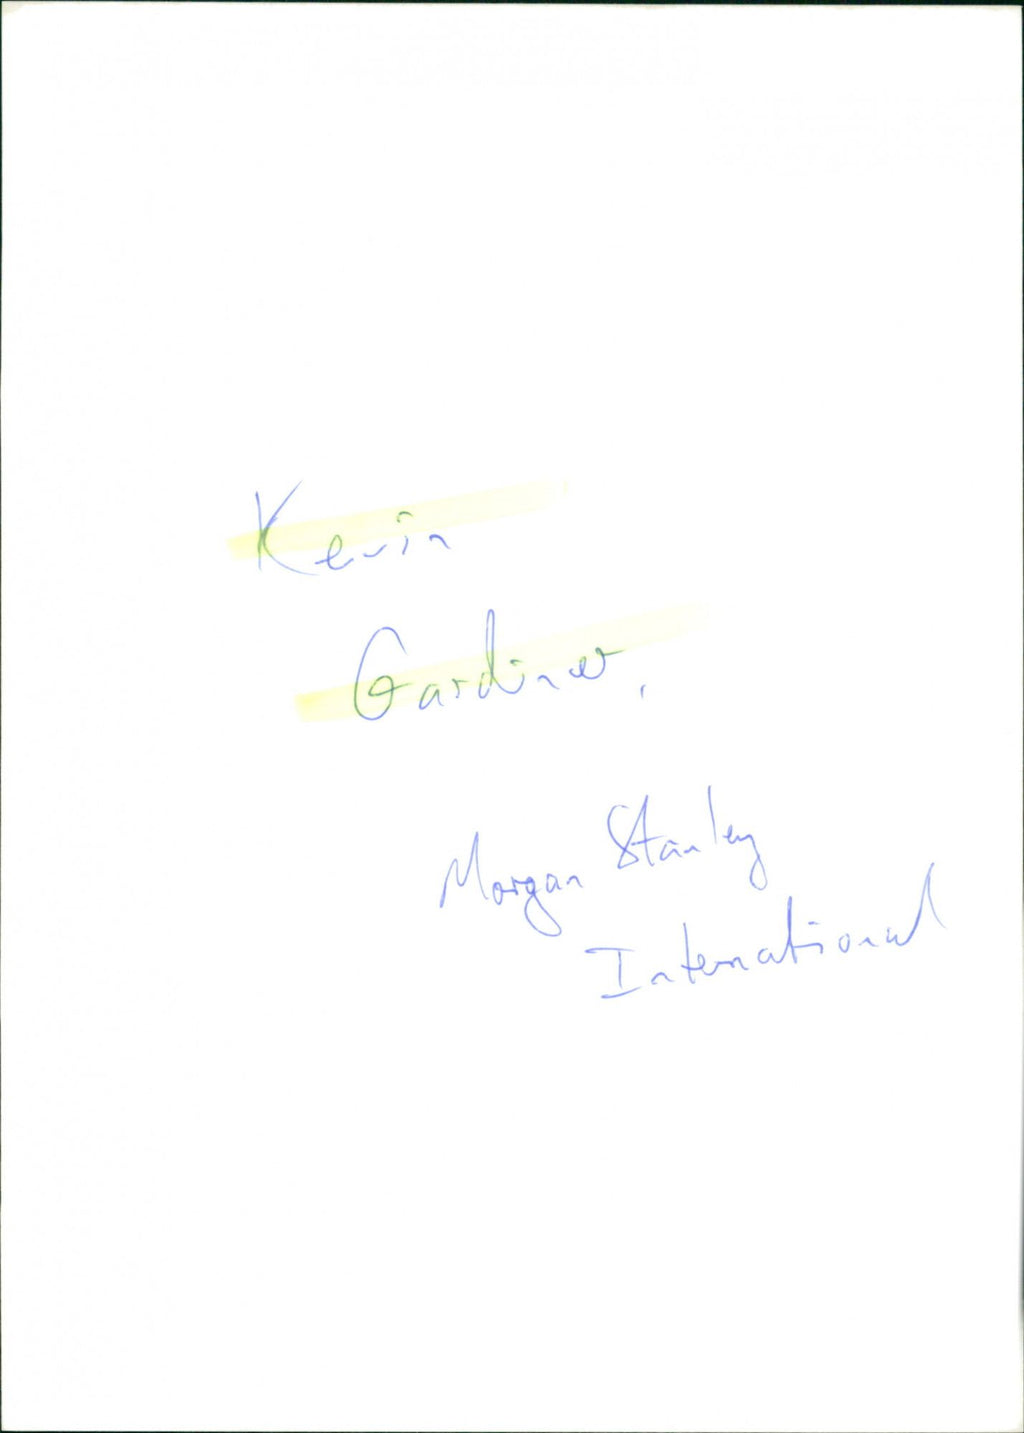 Kevin
Gardiner,
Morgan Stanley
International